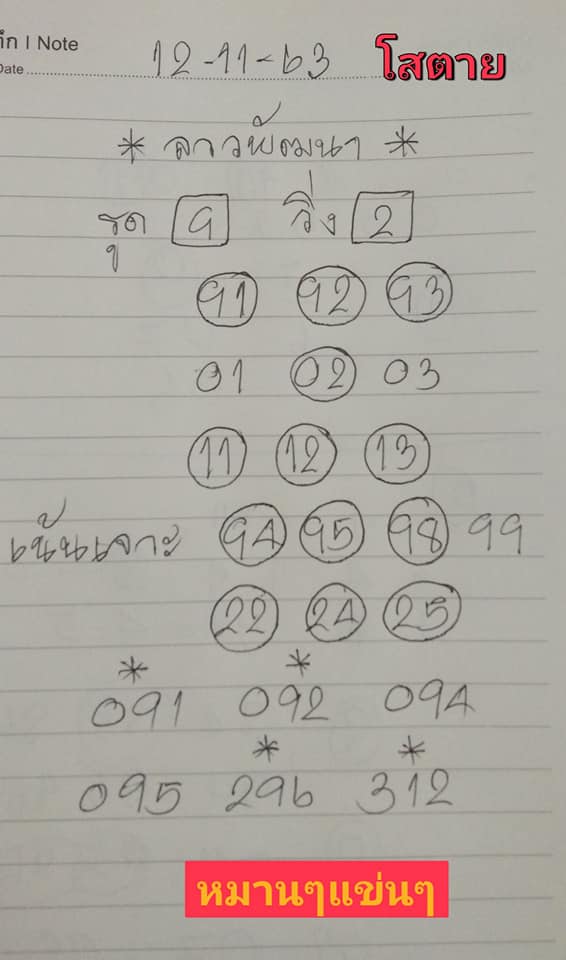 ทึก I Note
Date 12-11-63 โสตาย
* ลาวพัฒนา *
รูด 9 วิ่ง 2
91 92 93
01 02 03
11 12 13
เน้นเจาะ 94 95 98 99
22 24 25
* *
091 092 094
* *
095 296 312
หมานๆแข่นๆ